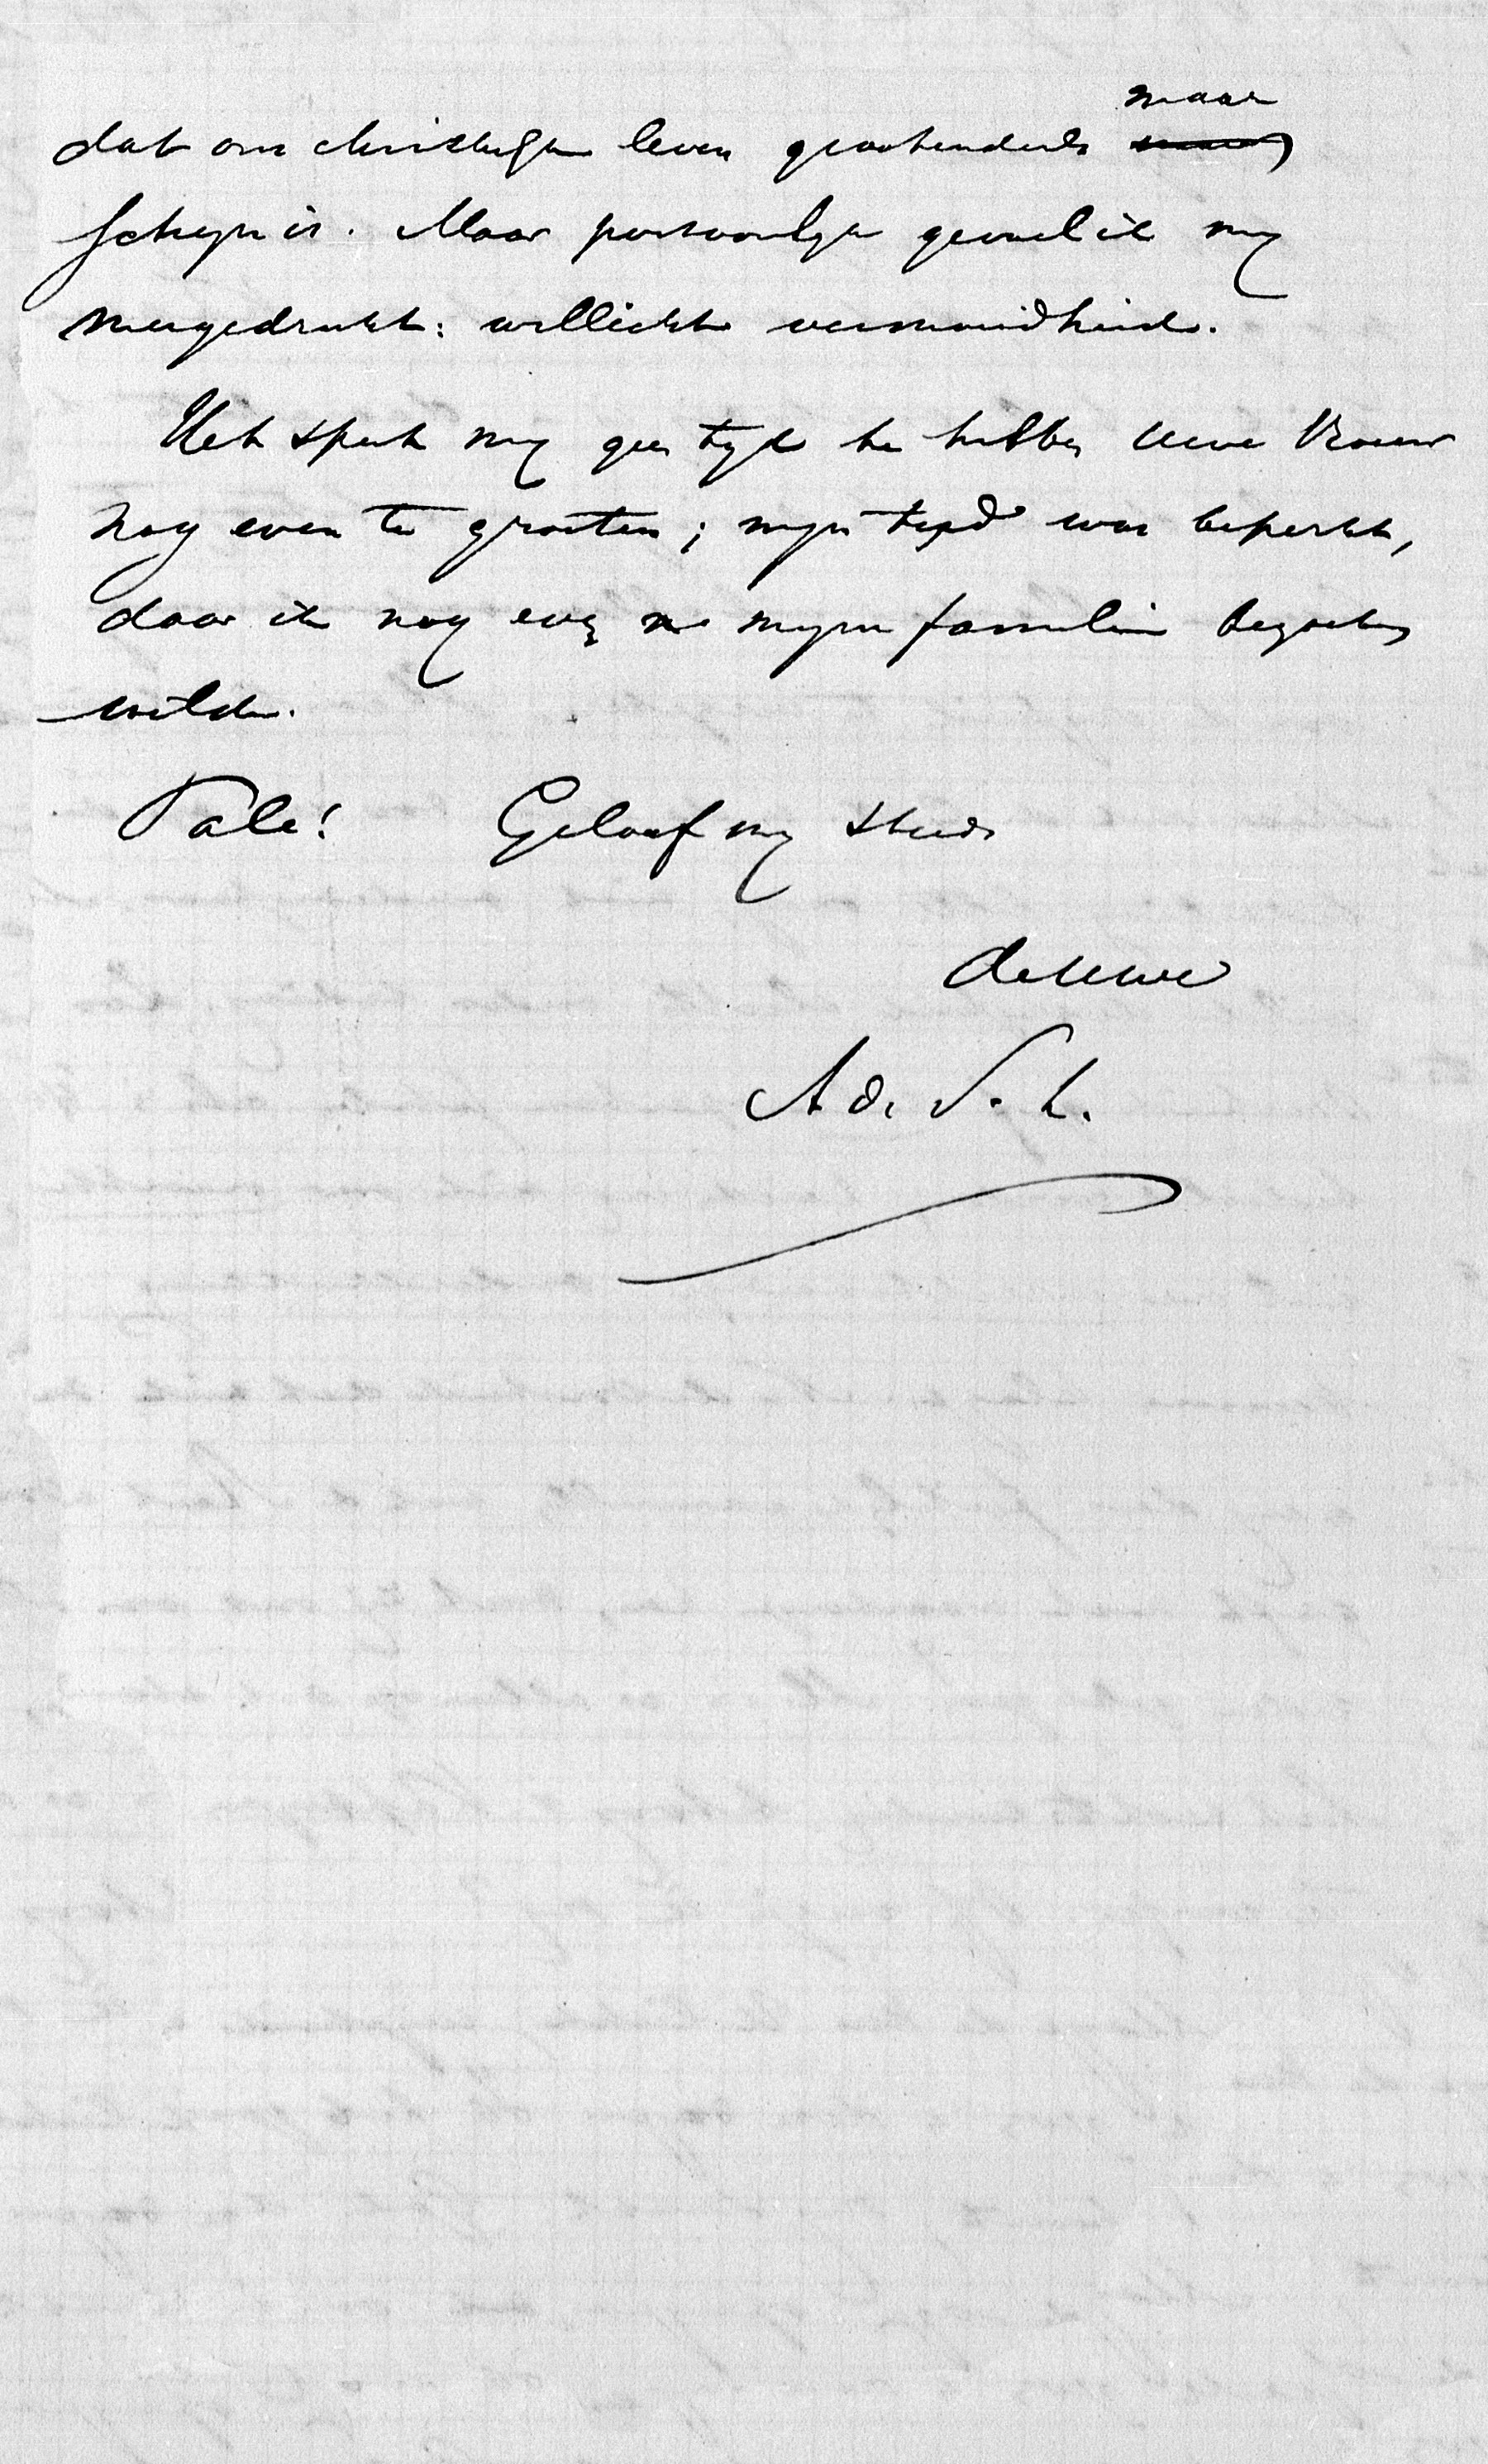 dat ons christelijk leven grootendeels maar
schijn is. Maar persoonlijk gevoel ik mij
neergedrukt: wellicht vermoeidheid.
Het speet mij geen tijd te hebben Uwe Vrouw
nog even te groeten; mijn tijd was beperkt,
daar ik nog even mijne familie bezoeken
wilde.
Vale! Geloof mij steeds
de Uwe
A d. S. L.